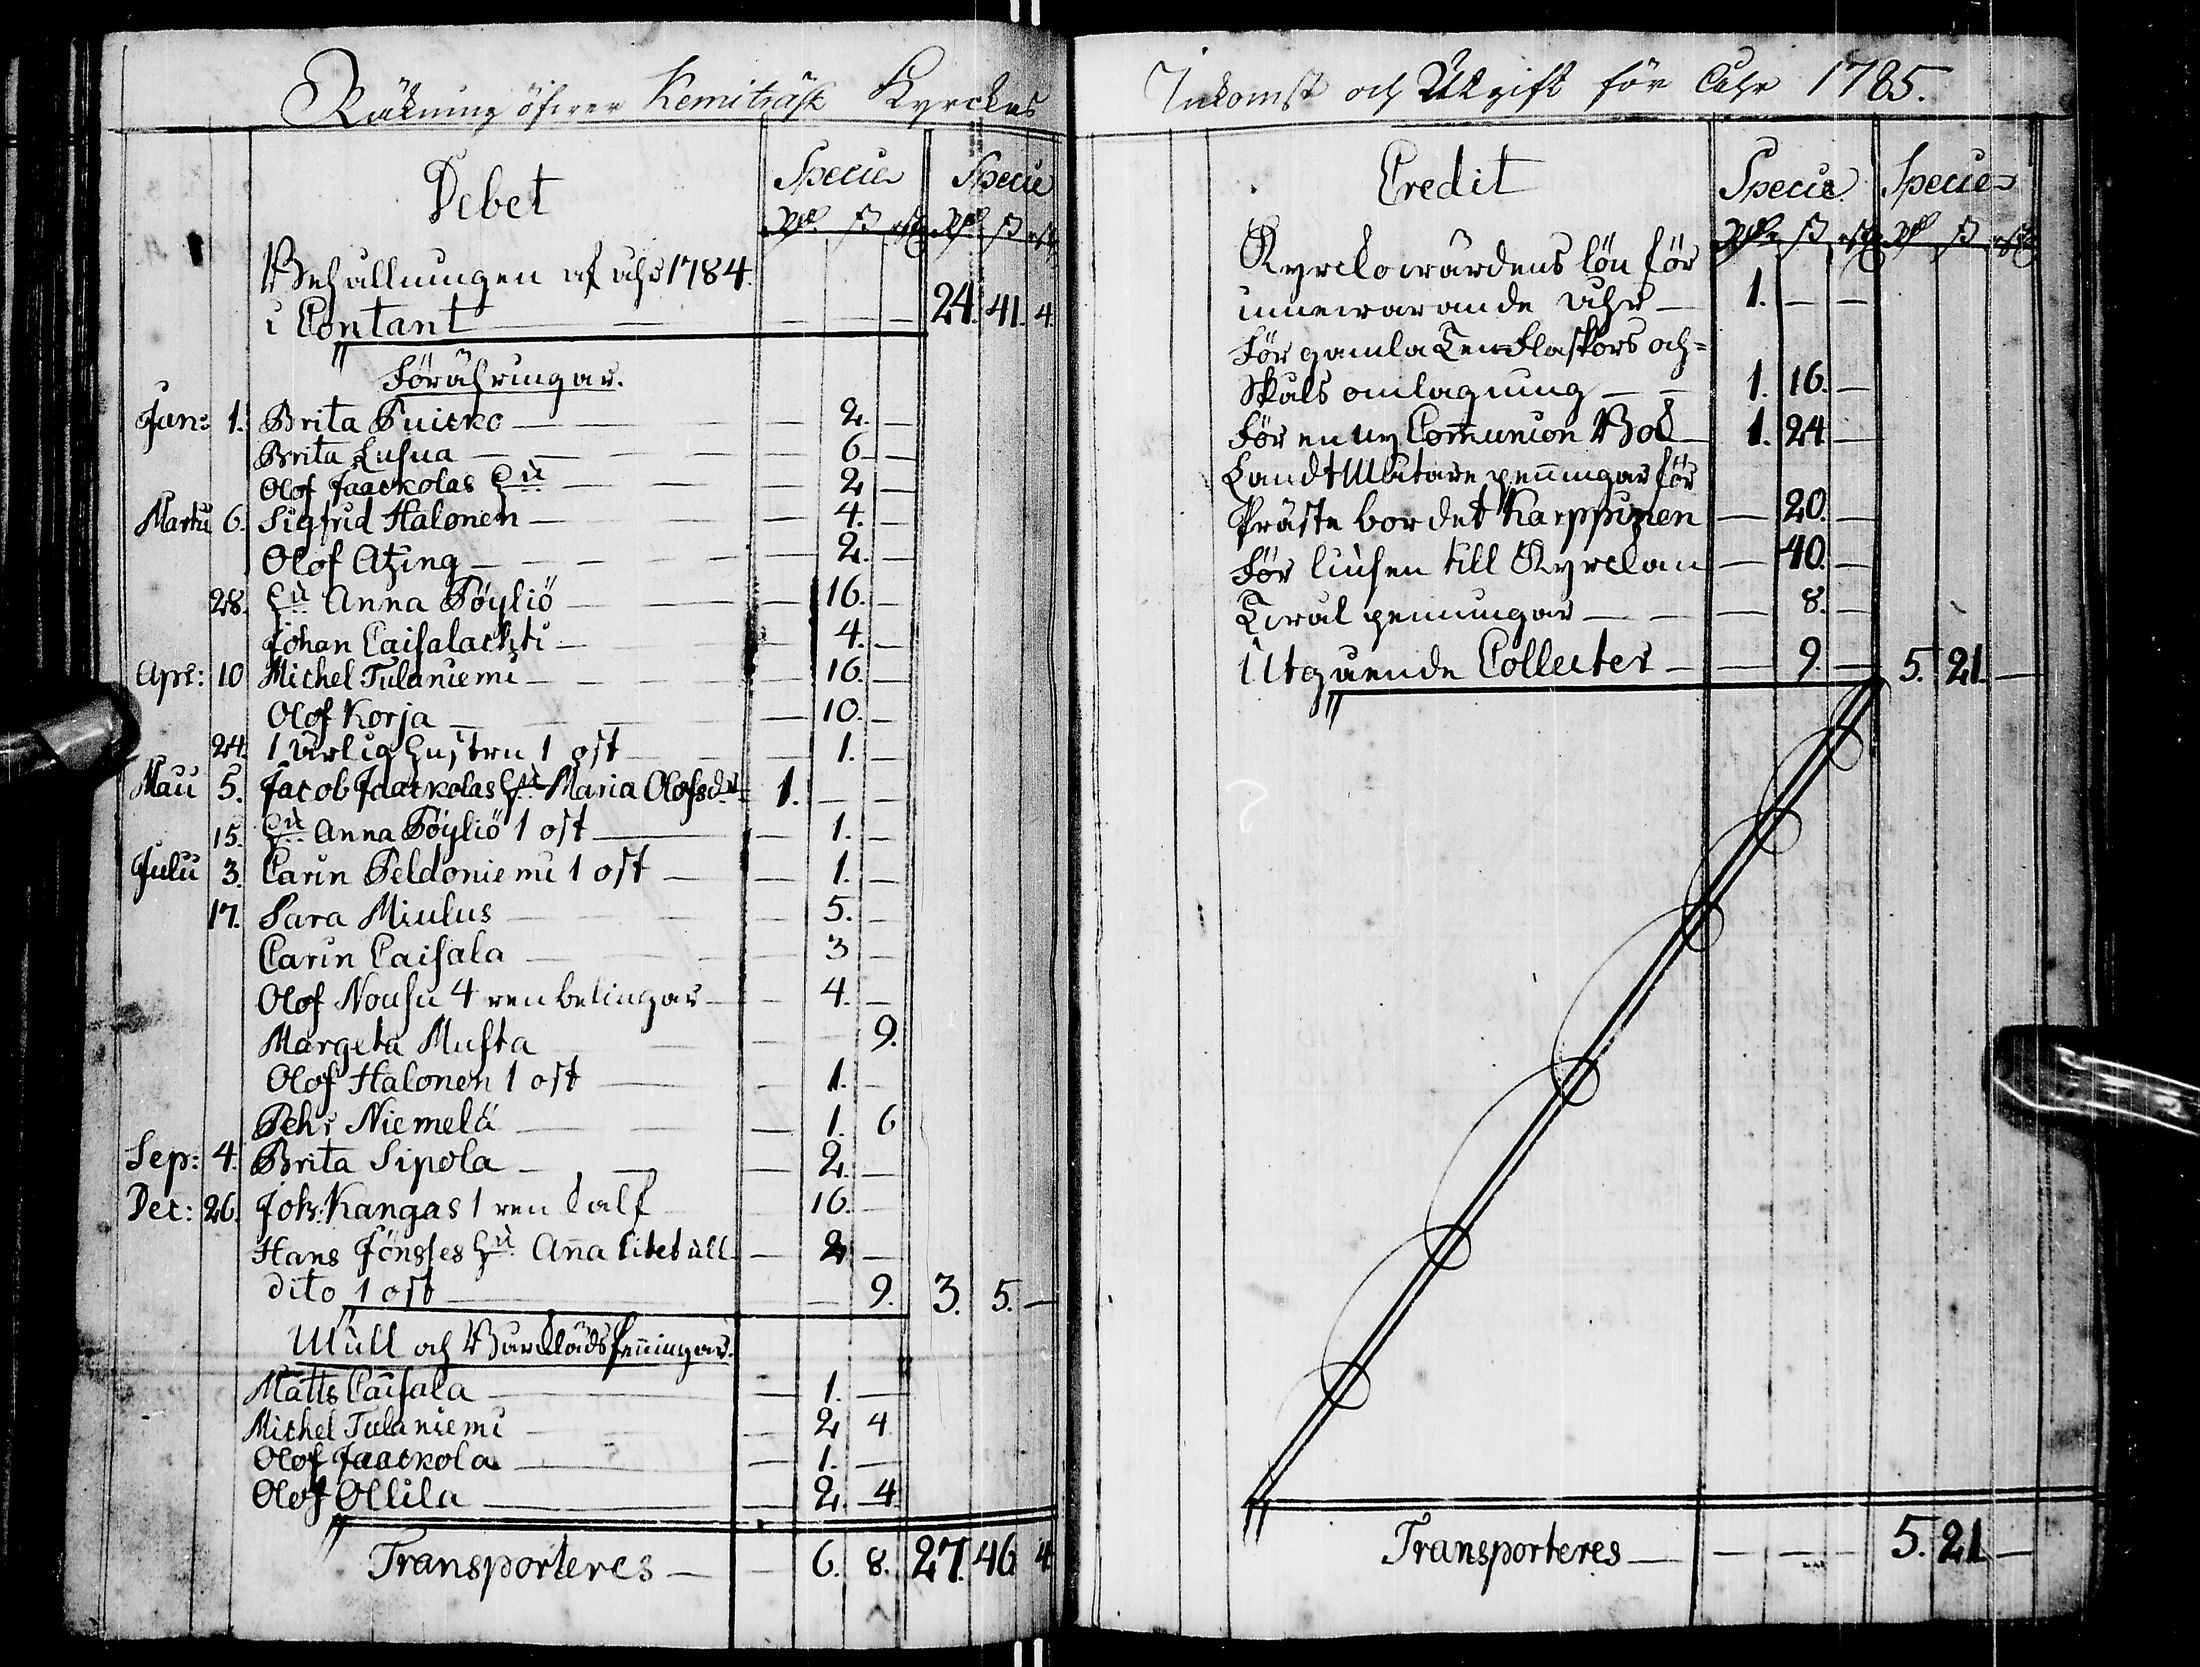 Räkning öfwer Kemiträsk Kyrckas
Debet Specie Specie
Rdr ß rst Rdr ß rst
Behållningen af åhr 1784.
i Contant — — — — 24. 41. 4.
Förähringar.
Jan: 1. Brita Puicko — — 2. —
Brita Lusua — — 6 —
Olof Jaackolas hu — — 2 —
Martii 6. Sigfrid Halonen — — 4. —
Olof Atzing — — 2. —
28. hu Anna Pöyliö — — 16. —
Johan Caisalachti — — 4. —
Apr: 10 Michel Tulaniemi — — 16. —
Olof Korja — — 10. —
24. 1 ärlig hustru 1 ost — — 1. —
Maii 5. Jacob Jaackolas hu Maria Olofsdr 1. — —
15. hu Anna Pöyliö 1 ost — — 1. —
Julii 3. Carin Peldoniemi 1 ost — — 1. —
17. Sara Miulus — — 5. —
Carin Caisala — — 3 —
Olof Nousu 4 renbelingar — — 4. —
Margeta Musta — — 9.
Olof Halonen 1 ost — — 1. —
Pehr Niemelä — — 1. 6
Sep: 4. Brita Sipola — — 2. —
Dec: 26. Joh: Kangas 1 ren kalf 16. —
Hans Jönsses hu Anna litet ull — 2 —
dito 1 ost — — 9. 3. 5. —
Mull och Barkläds penningar.
Matts Caisala — — 1. —
Michel Tulaniemi — 2 4
Olof Jaackola — — 1. —
Olof Ollila — — 2. 4
Transporteres — — 6. 8. 27. 46 4
Inkomst och Utgift för Åhr 1785.
Credit Specie Specie
Rdr ß rst Rdr ß rst
Kyrckowärdens lön för
innewarande åhr — 1. — —
För gamla Ten Flaskors och
Skåls omlagning — — 1. 16. —
För en ny Communion Bok — 1. 24 —
Landtmätare penningar för
Prästebordet Karppinen — 20. —
För liusen till Kyrckan — 40. —
Tiral penningar — — 8. —
Utgående Collecter — — 9. — 5. 21. —
Transporteres — — — — 5. 21. —